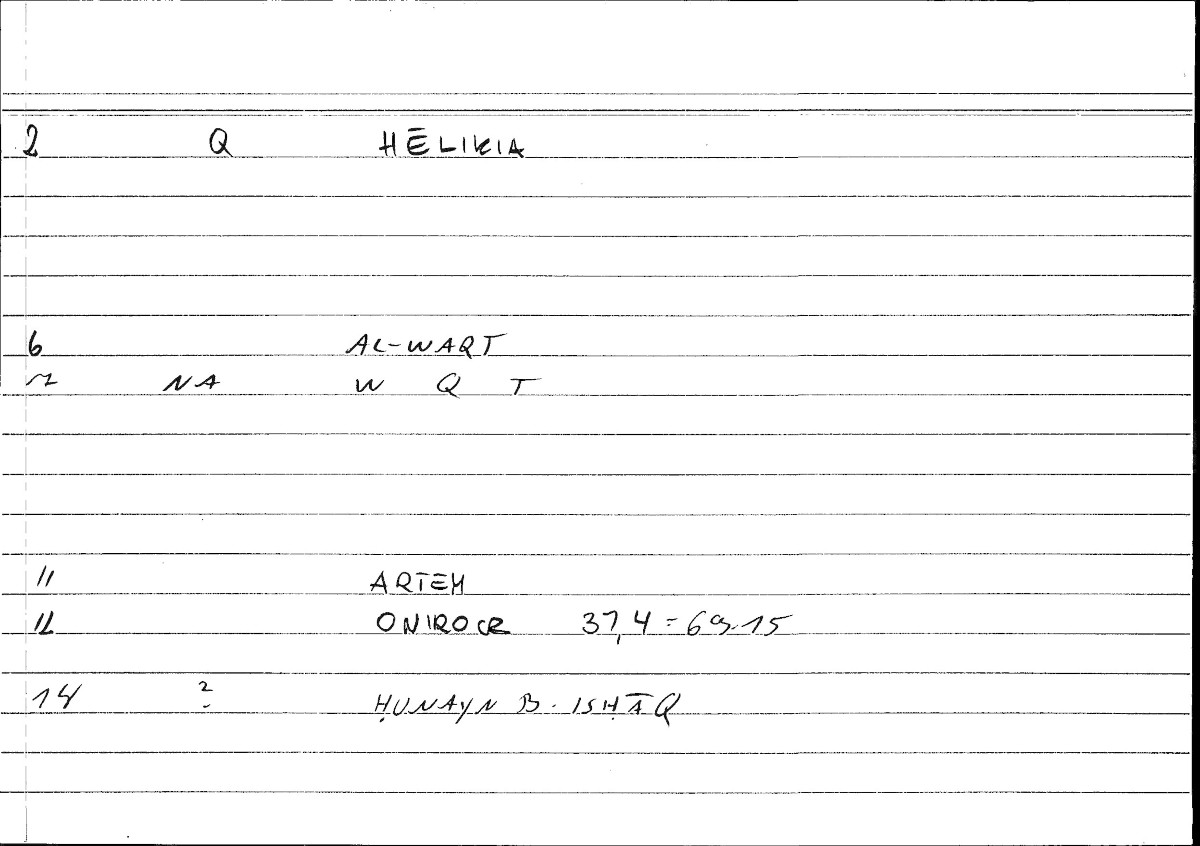 2 Q HĒLIKIA
6 AL-WAQT
7 NA W Q T
11 ARTEM
12 ONIROCR 37,4 = 69.15
14 ? ḤUNAYN B. ISḤĀQ